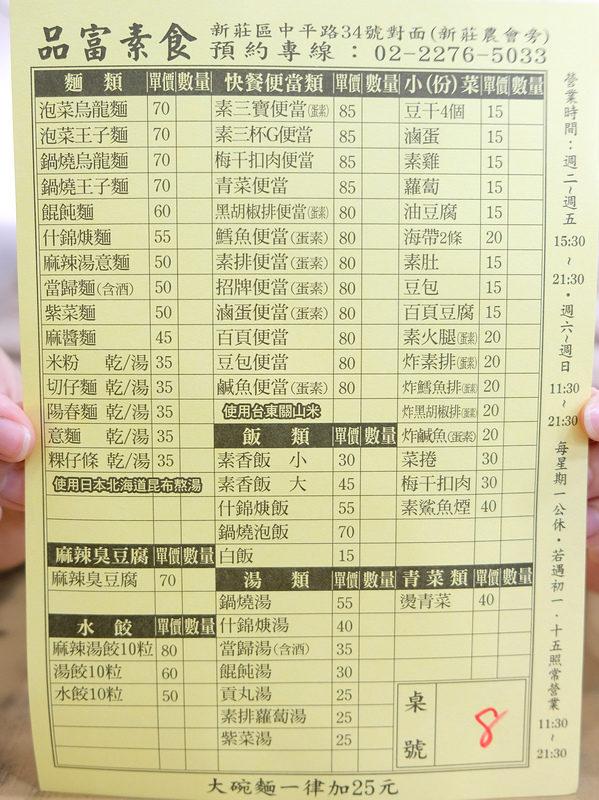 品富素食 新莊區中平路34號對面(新莊農會旁)
預約專線：02-2276-5033
麵類 單價 數量
泡菜烏龍麵 70
泡菜王子麵 70
鍋燒烏龍麵 70
鍋燒王子麵 70
餛飩麵 60
什錦焿麵 55
麻辣湯意麵 50
當歸麵(含酒) 50
紫菜麵 50
麻醬麵 45
米粉 乾/湯 35
切仔麵 乾/湯 35
陽春麵 乾/湯 35
意麵 乾/湯 35
粿仔條 乾/湯 35
使用日本北海道昆布熬湯
麻辣臭豆腐 單價 數量
麻辣臭豆腐 70
水餃 單價 數量
麻辣湯餃10粒 80
湯餃10粒 60
水餃10粒 50
快餐便當類 單價 數量
素三寶便當(蛋素) 85
素三杯G便當 85
梅干扣肉便當 85
青菜便當 85
黑胡椒排便當(蛋素) 80
鱈魚便當(蛋素) 80
素排便當(蛋素) 80
招牌便當(蛋素) 80
滷蛋便當(蛋素) 80
百頁便當 80
豆包便當 80
鹹魚便當(蛋素) 80
使用台東關山米
飯類 單價 數量
素香飯 小 30
素香飯 大 45
什錦焿飯 55
鍋燒泡飯 70
白飯 15
湯類 單價 數量
鍋燒湯 55
什錦焿湯 40
當歸湯(含酒) 35
餛飩湯 30
貢丸湯 25
素排蘿蔔湯 25
紫菜湯 25
小(份)菜 單價 數量
豆干4個 15
滷蛋 15
素雞 15
蘿蔔 15
油豆腐 15
海帶2條 20
素肚 15
豆包 15
百頁豆腐 15
素火腿(蛋素) 20
炸素排(蛋素) 20
炸鱈魚排(蛋素) 20
炸黑胡椒排(蛋素) 20
炸鹹魚(蛋素) 20
菜捲 30
梅干扣肉 30
素鯊魚煙 40
青菜類 單價 數量
燙青菜 40
桌號 8
營業時間：週二~週五 15:30~21:30・週六~週日 11:30~21:30 每星期一公休・若遇初一・十五照常營業 11:30~21:30
大碗麵一律加25元